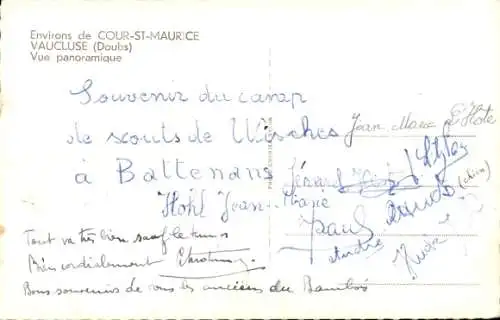 Environs de COUR-ST-MAURICE
VAUCLUSE (Doubs)
Vue panoramique
Souvenir du camp
de scouts de Wisches
à Battenans
Jean Marie L'Hote
Gérard
Hohl Jean-Marie
Paul
André
Tout va très bien sauf le temps
Bien cordialement
Bons souvenirs de tous les anciens du